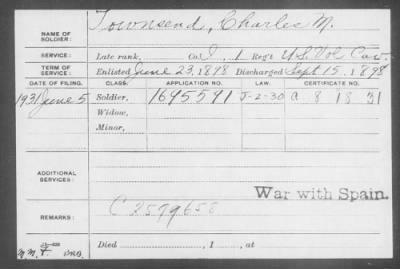 NAME OF SOLDIER: Townsend, Charles M.
SERVICE: Late rank, Co. I, 1 Reg't U.S. Vol Cav.
TERM OF SERVICE: Enlisted June 23, 1898 Discharged Sept 15, 1898
DATE OF FILING. CLASS. APPLICATION NO. LAW. CERTIFICATE NO.
1931 June 5 Soldier, 1695591 J-2-30 A 8 18 31
Widow,
Minor,
ADDITIONAL SERVICES:
War with Spain.
REMARKS: C 2579658
Died , 1 , at